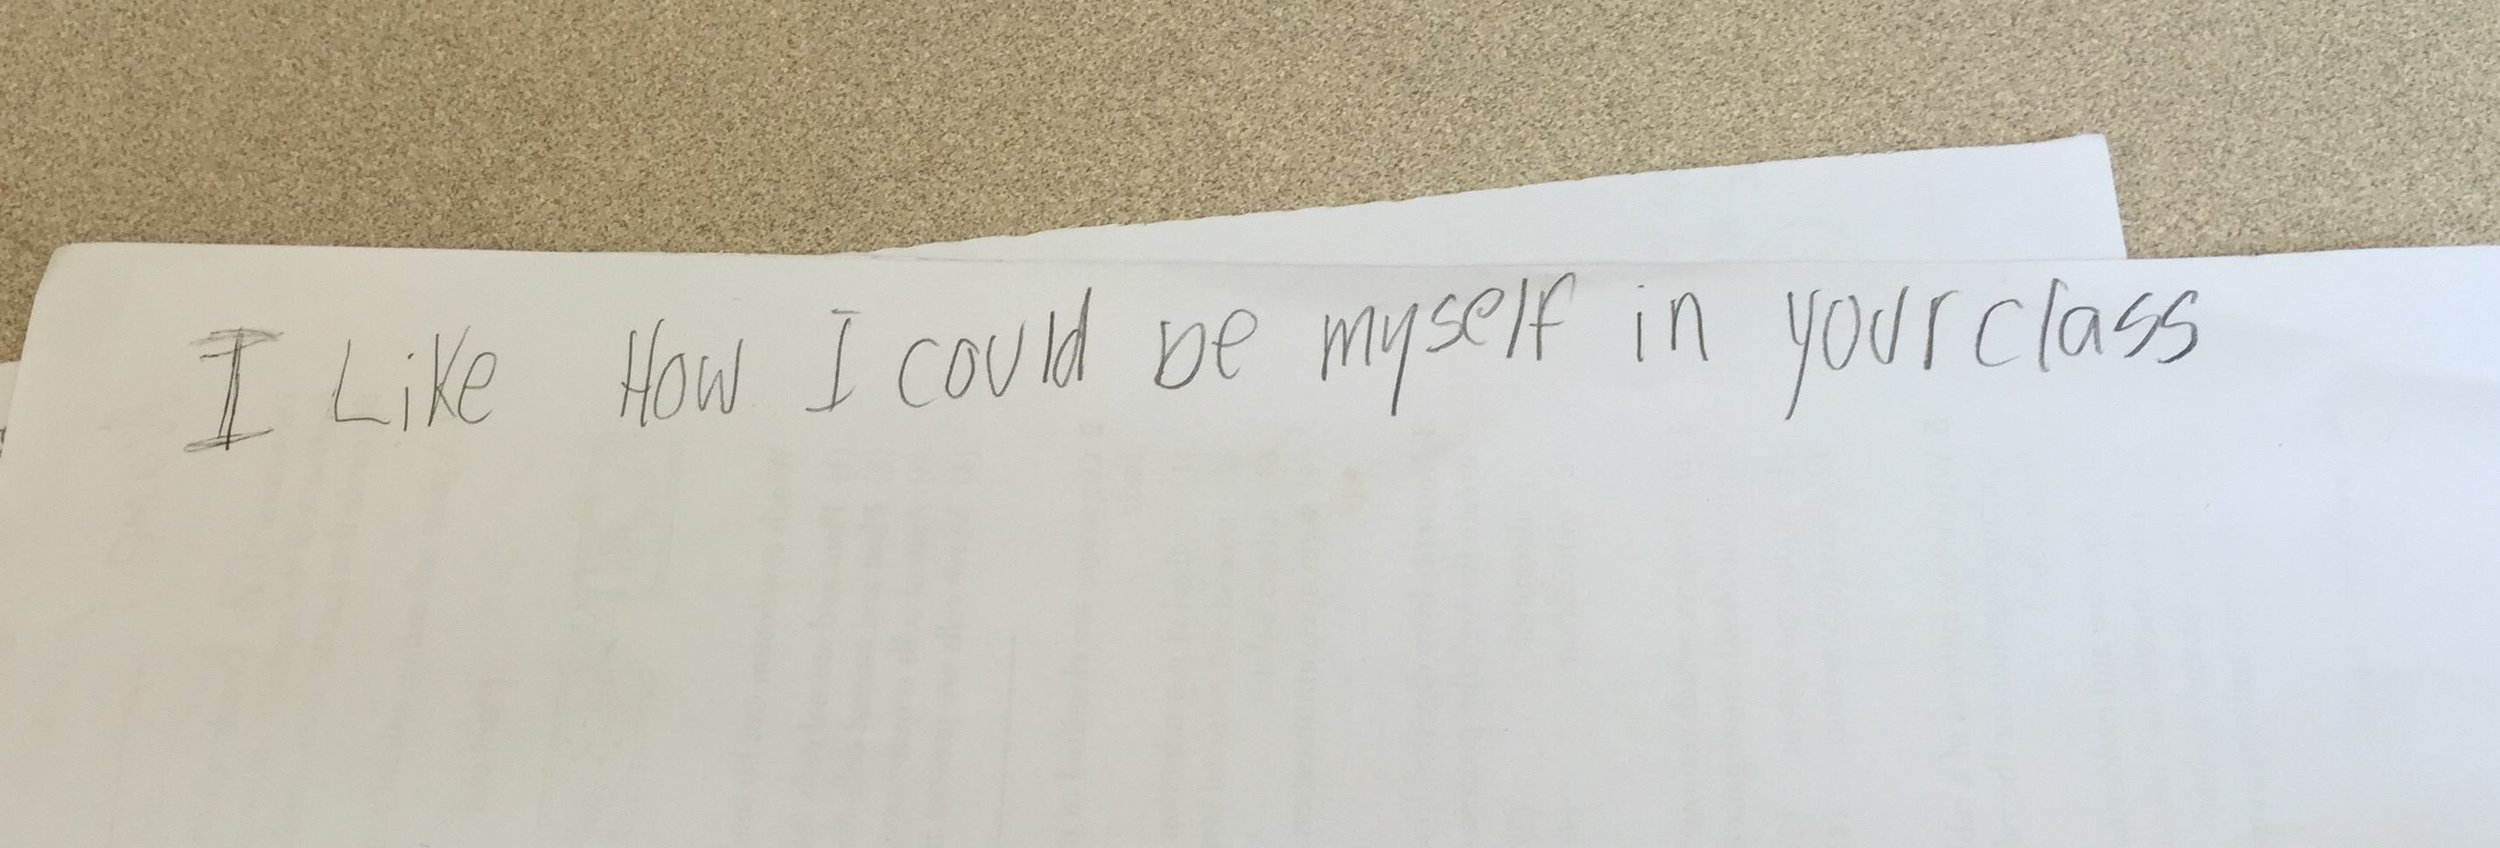 I Like How I could be myself in your class